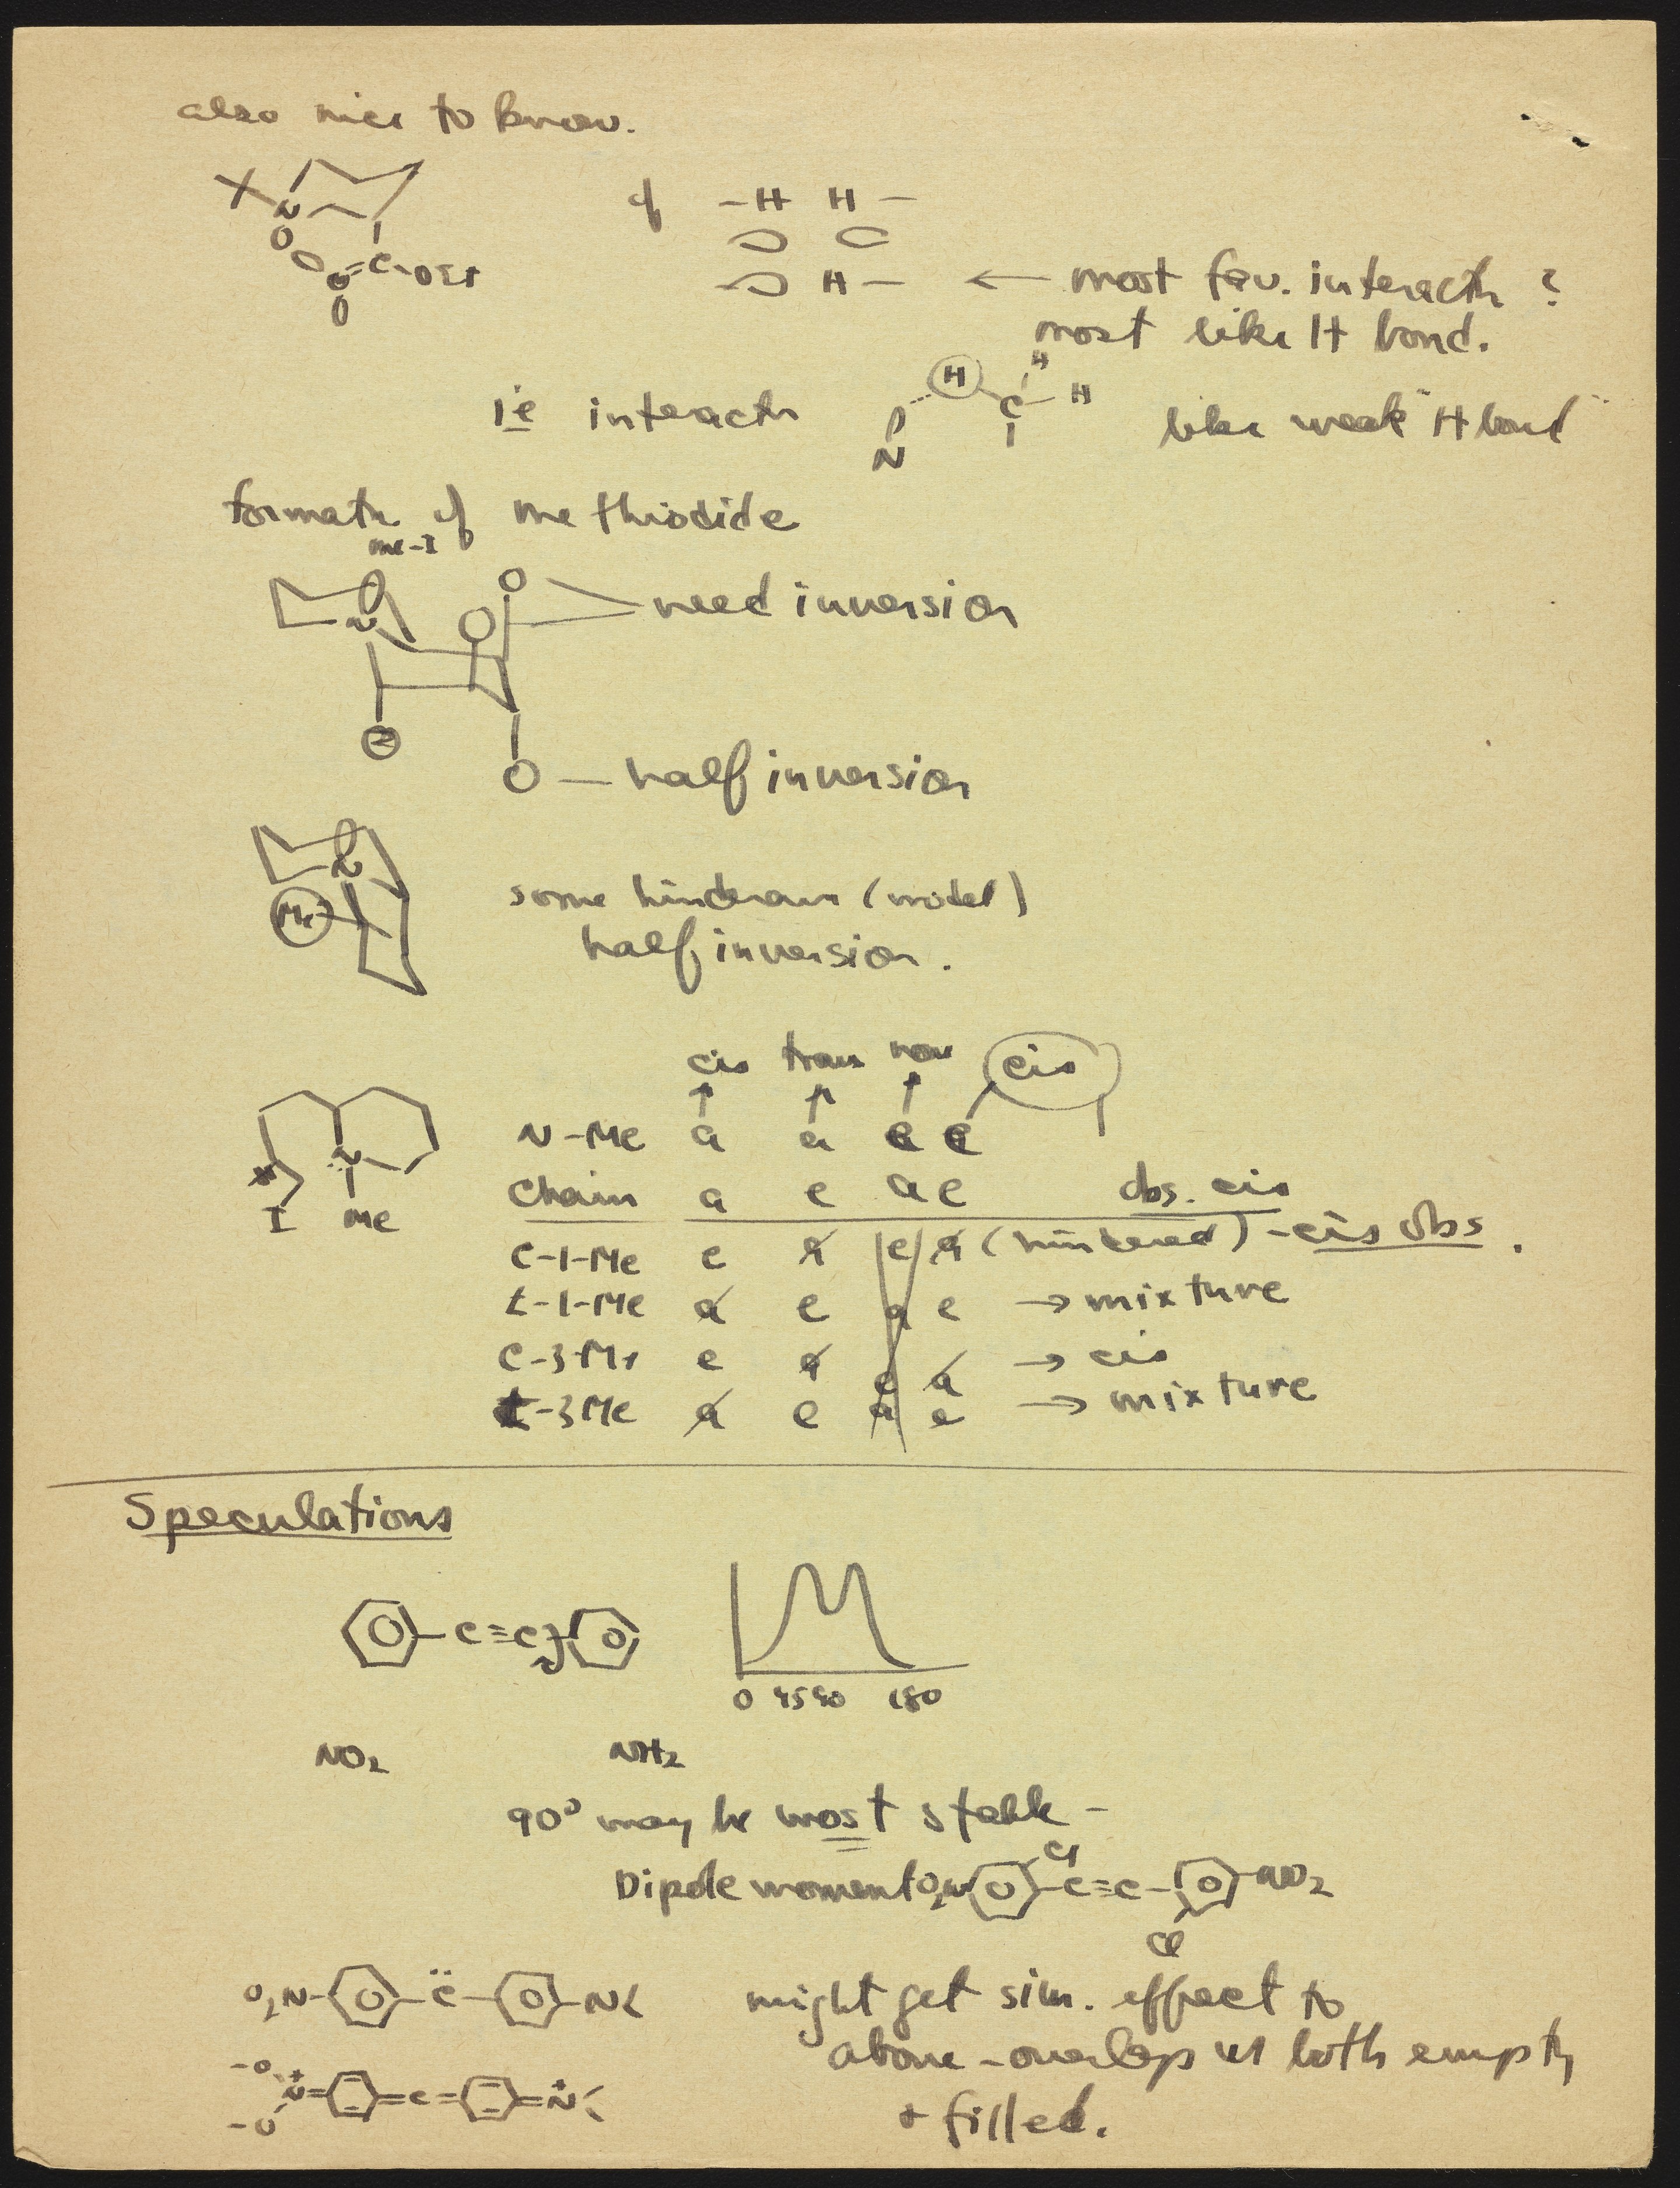 also nice to know.
X N C-OEt
of -H H-
H- ← most fav. interactn ?
most like H bond.
ie interactn N H C H H like weak "H bond"
formatn of methiodide
me-I
N O O need inversion
O - half inversion
N
Me some hindran (model)
half inversion.
cis trans non cis
N-Me a a e e
Chain a e a e obs. cis
C-1-Me e a e a (hindered) - cis obs.
t-1-Me a e a e → mixture
C-3-Me e a e a → cis
t-3Me a e a e → mixture
N I Me
Speculations
C≡C
0 45 90 180
NO2 NH2
90° may be most stable -
Dipole moment O2N Cl C≡C NO2
Cl
O2N C̈ N< might get sim. effect to
above - overlap w both empty
-O N+ = = C = = N+ <
-O + filled.